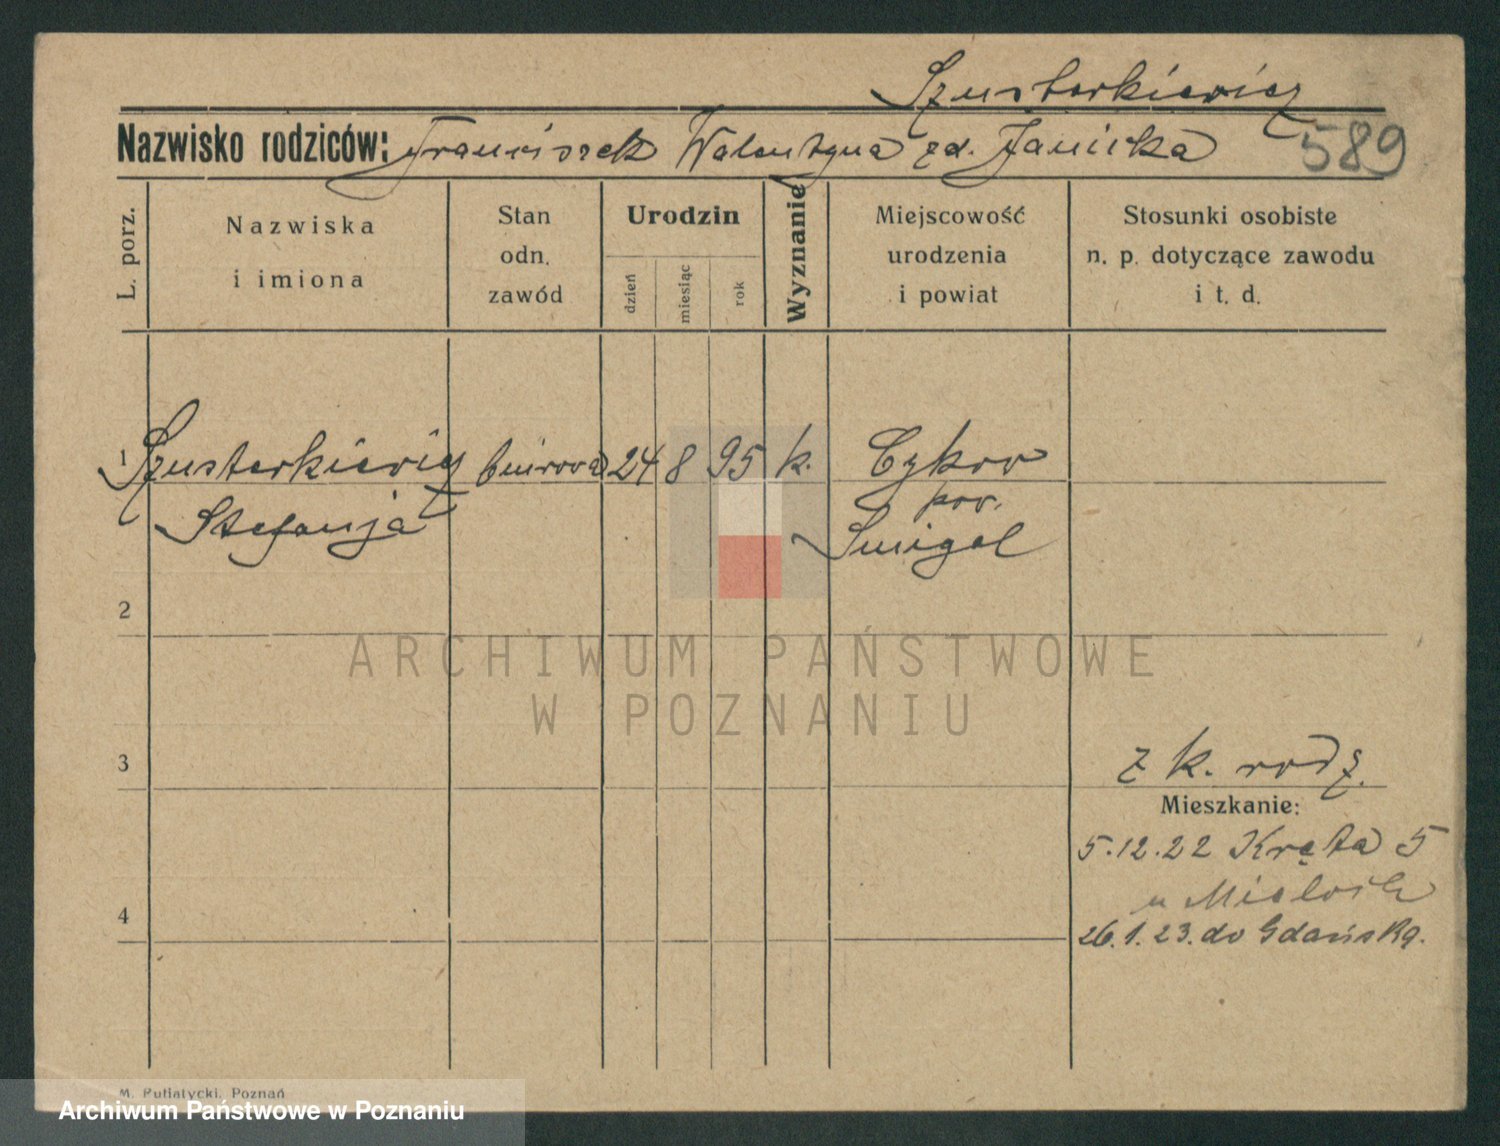 Szusterkiewicz
Nazwisko rodziców: Franciszek Walentyna zd. Janicka 589
L. porz.
Nazwiska
i imiona
Stan
odn.
zawód
Urodzin
dzień
miesiąc
rok
Wyznanie
Miejscowość
urodzenia
i powiat
Stosunki osobiste
n. p. dotyczące zawodu
i t. d.
1 Szusterkiewicz biurowa 24 8 95 k. Cykow
pow.
Stefanja Śmigel
2
ARCHIWUM PAŃSTWOWE
W POZNANIU
z k. rodz.
3
Mieszkanie:
5.12.22 Kręta 5
u
4
26.1.23. do Gdańska.
M. Putiatycki, Poznań
Archiwum Państwowe w Poznaniu